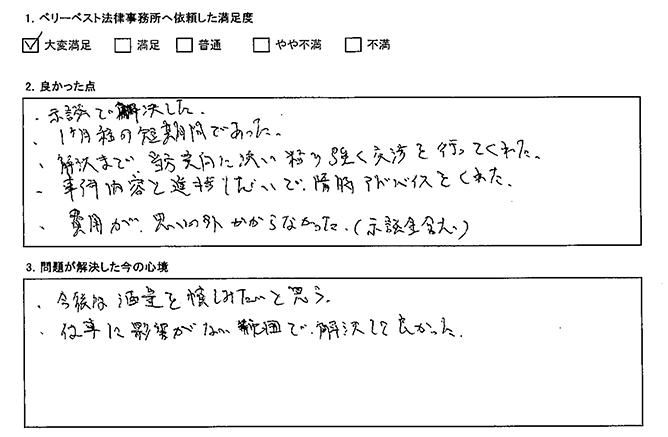 1. ベリーベスト法律事務所へ依頼した満足度
☑ 大変満足 □ 満足 □ 普通 □ やや不満 □ 不満
2. 良かった点
・示談で解決した。
・1ヶ月程の短期間であった。
・解決まで当方意向に沿い粘り強く交渉を行ってくれた。
・事件内容と進捗しだいで、随時アドバイスをくれた。
・費用が、思いの外かからなかった。(示談金含む)
3. 問題が解決した今の心境
・今後は酒量を慎しみたいと思う。
・仕事に影響がない範囲で、解決して良かった。